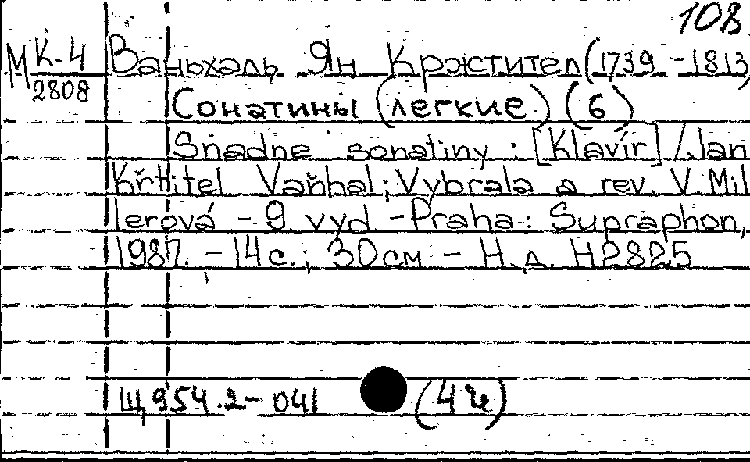 108
МК-4
2808
Ваньхаль Ян Кржстител (1739-1813)
Сонатины (легкие.) (6)
Snadne sonatiny : [Klavír] /Jan
Křtitel Vaňhal; Vybrala a rev. V. Mil
lerová - 9 vyd - Praha: Supraphon,
1987. - 14 с.; 30 см - Н. д. H2825
Щ 954.2-041 (4 Че)